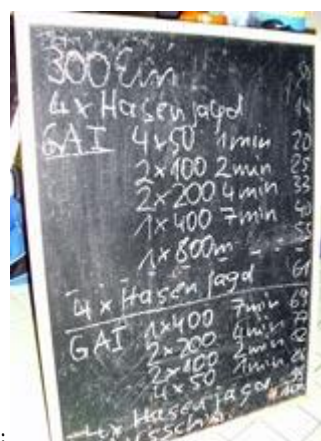 300 Ein
4x Hasenjagd 14
GAI 4x50 1min 20
2x100 2min 25
2x200 4min 33
1x400 7min 40
1x800m
4x Hasenjagd 61
GAI 1x400 7min 69
2x200 4min
2x100 2min
4x50 1min
4x Hasenjagd